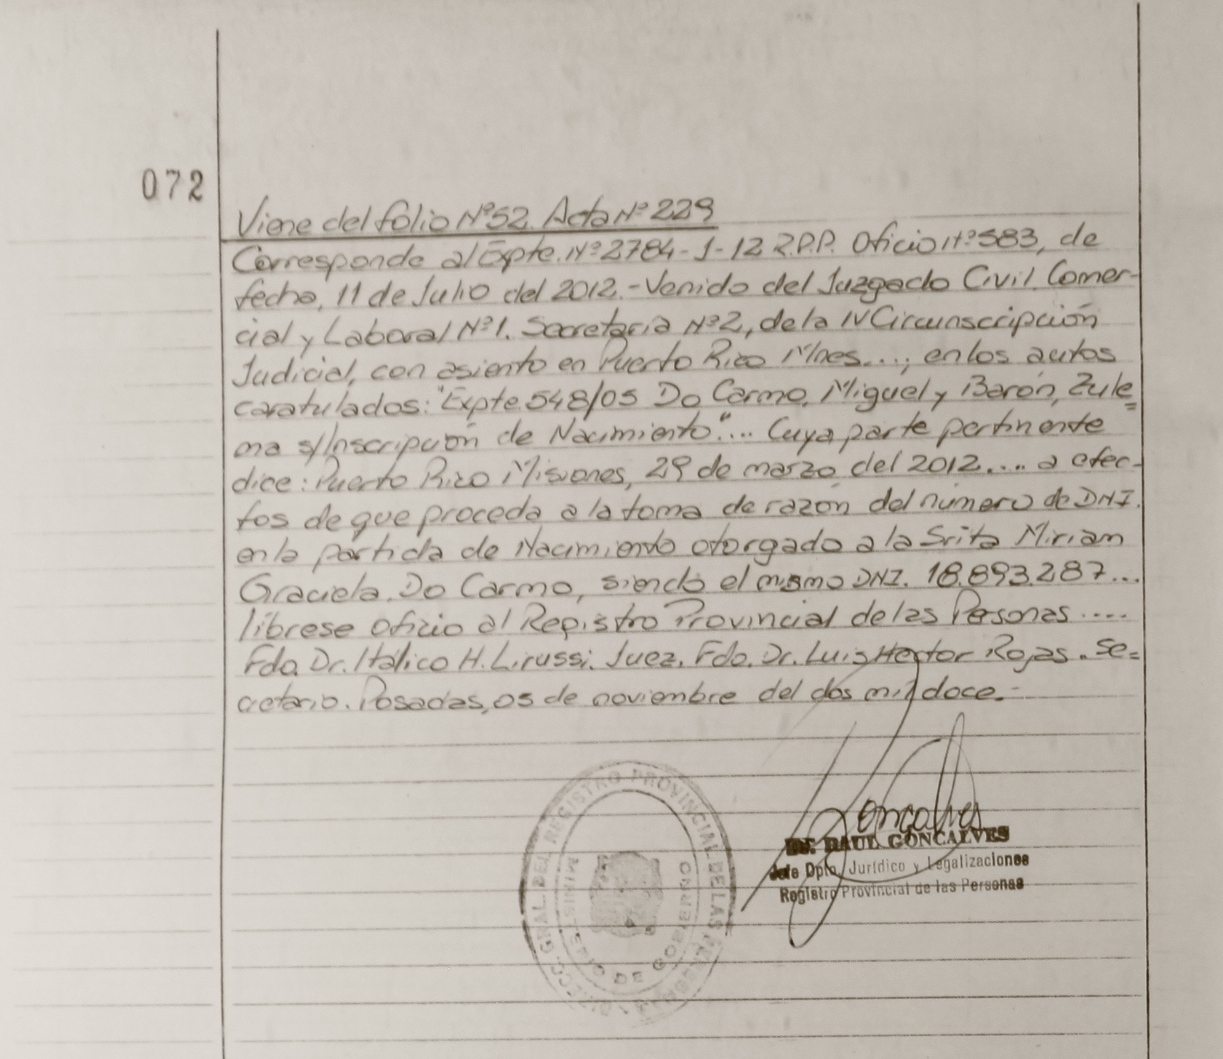 072
Viene del folio Nº52. Acta Nº 229
Corresponde al Expte. Nº 2784-J-12 R.P.P. Oficio Nº583, de
fecha, 11 de Julio del 2012.- Venido del Juzgado Civil, Comer-
cial y Laboral Nº1. Secretaria Nº2, de la IV Circunscripción
Judicial, con asiento en Puerto Rico Mnes...; en los autos
caratulados: "Expte 548/05 Do Carmo, Miguel y Barón, Zule=
ma s/Inscripción de Nacimiento."... Cuya parte pertinente
dice: Puerto Rico Misiones, 29 de marzo del 2012.... a efec-
tos de que proceda a la toma de razón del número de DNI.
en la partida de Nacimiento otorgado a la Srita Mirian
Graciela Do Carmo, siendo el mismo DNI. 18.893.287...
líbrese oficio al Registro Provincial de las Personas....
Fdo. Dr. Itálico H. Lirussi. Juez. Fdo. Dr. Luis Hector Rojas. Se=
cretario. Posadas, 05 de noviembre del dos mil doce.-
Goncalves
Dr. RAUL GONCALVES
Jefe Dpto. Jurídico y Legalizaciones
Registro Provincial de las Personas
DIRECC. GRAL. DEL REGISTRO PROVINCIAL DE LAS PERSONAS
MINISTERIO DE GOBIERNO